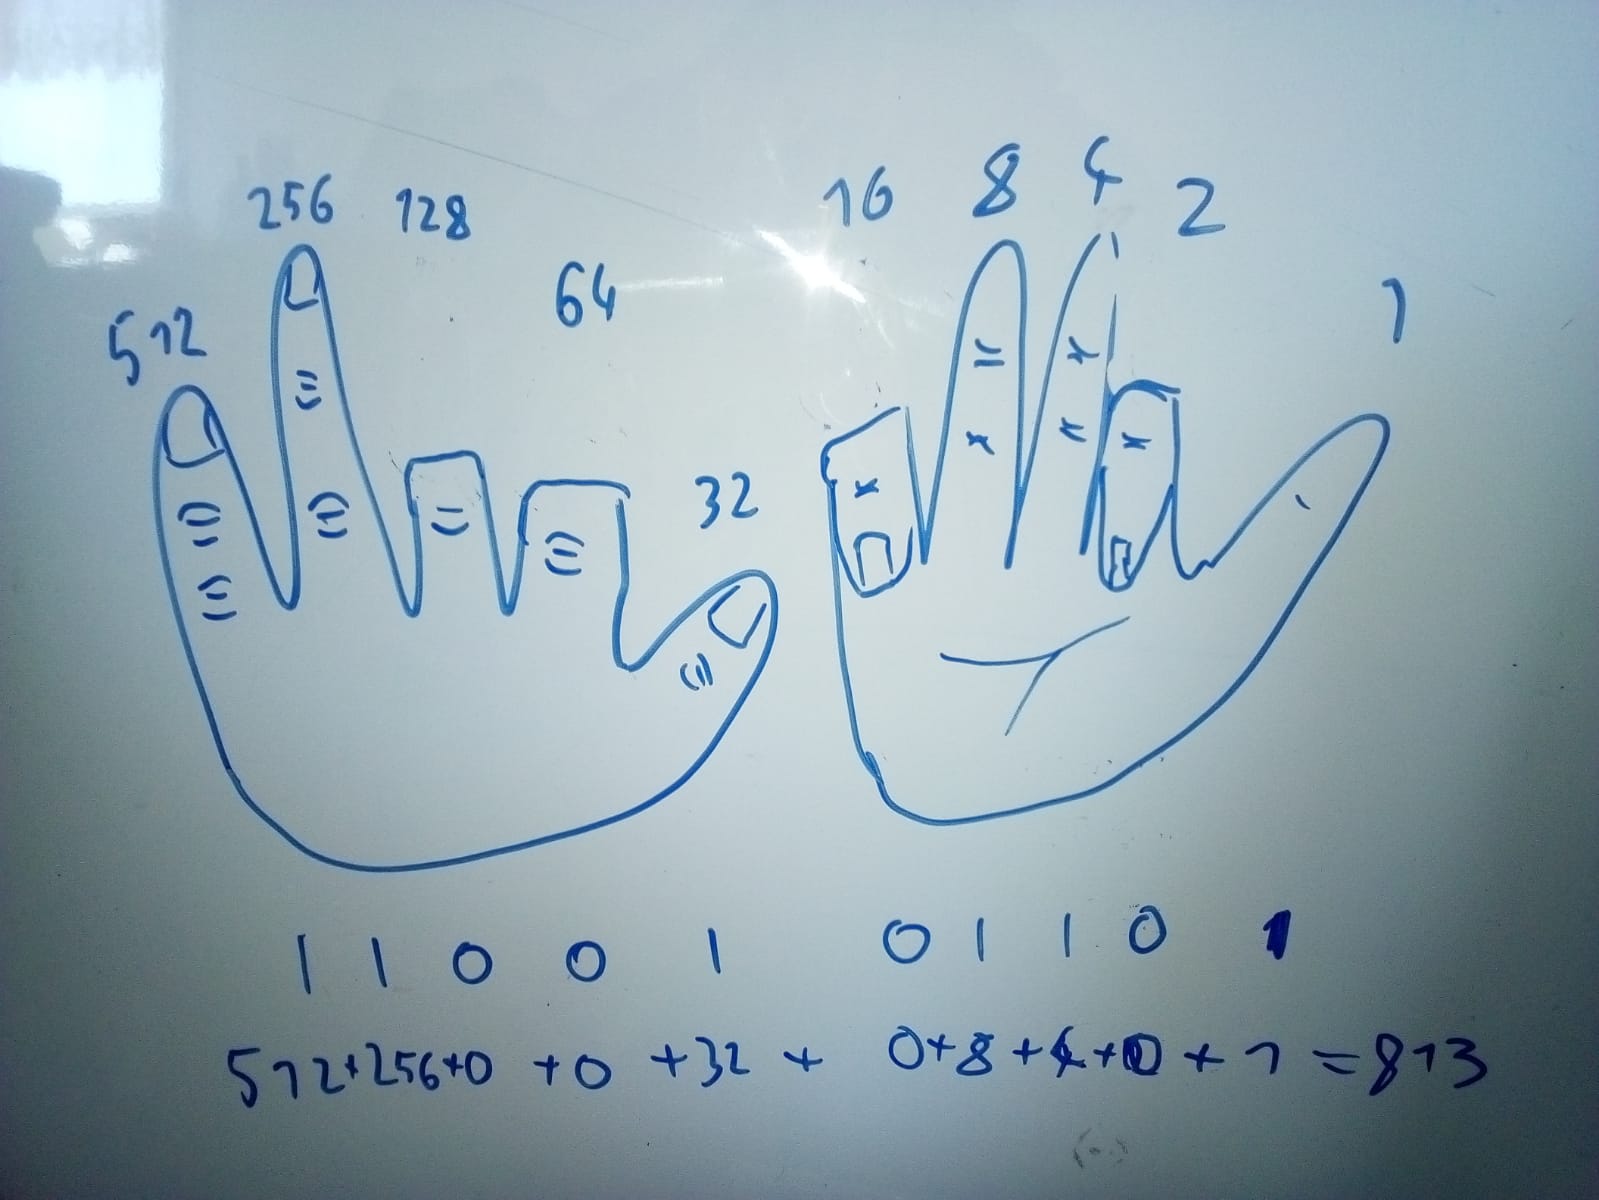 512 256 128 64 32 16 8 4 2 1
1 1 0 0 1 0 1 1 0 1
512+256+0 +0 +32 + 0+8+4+0+1=813